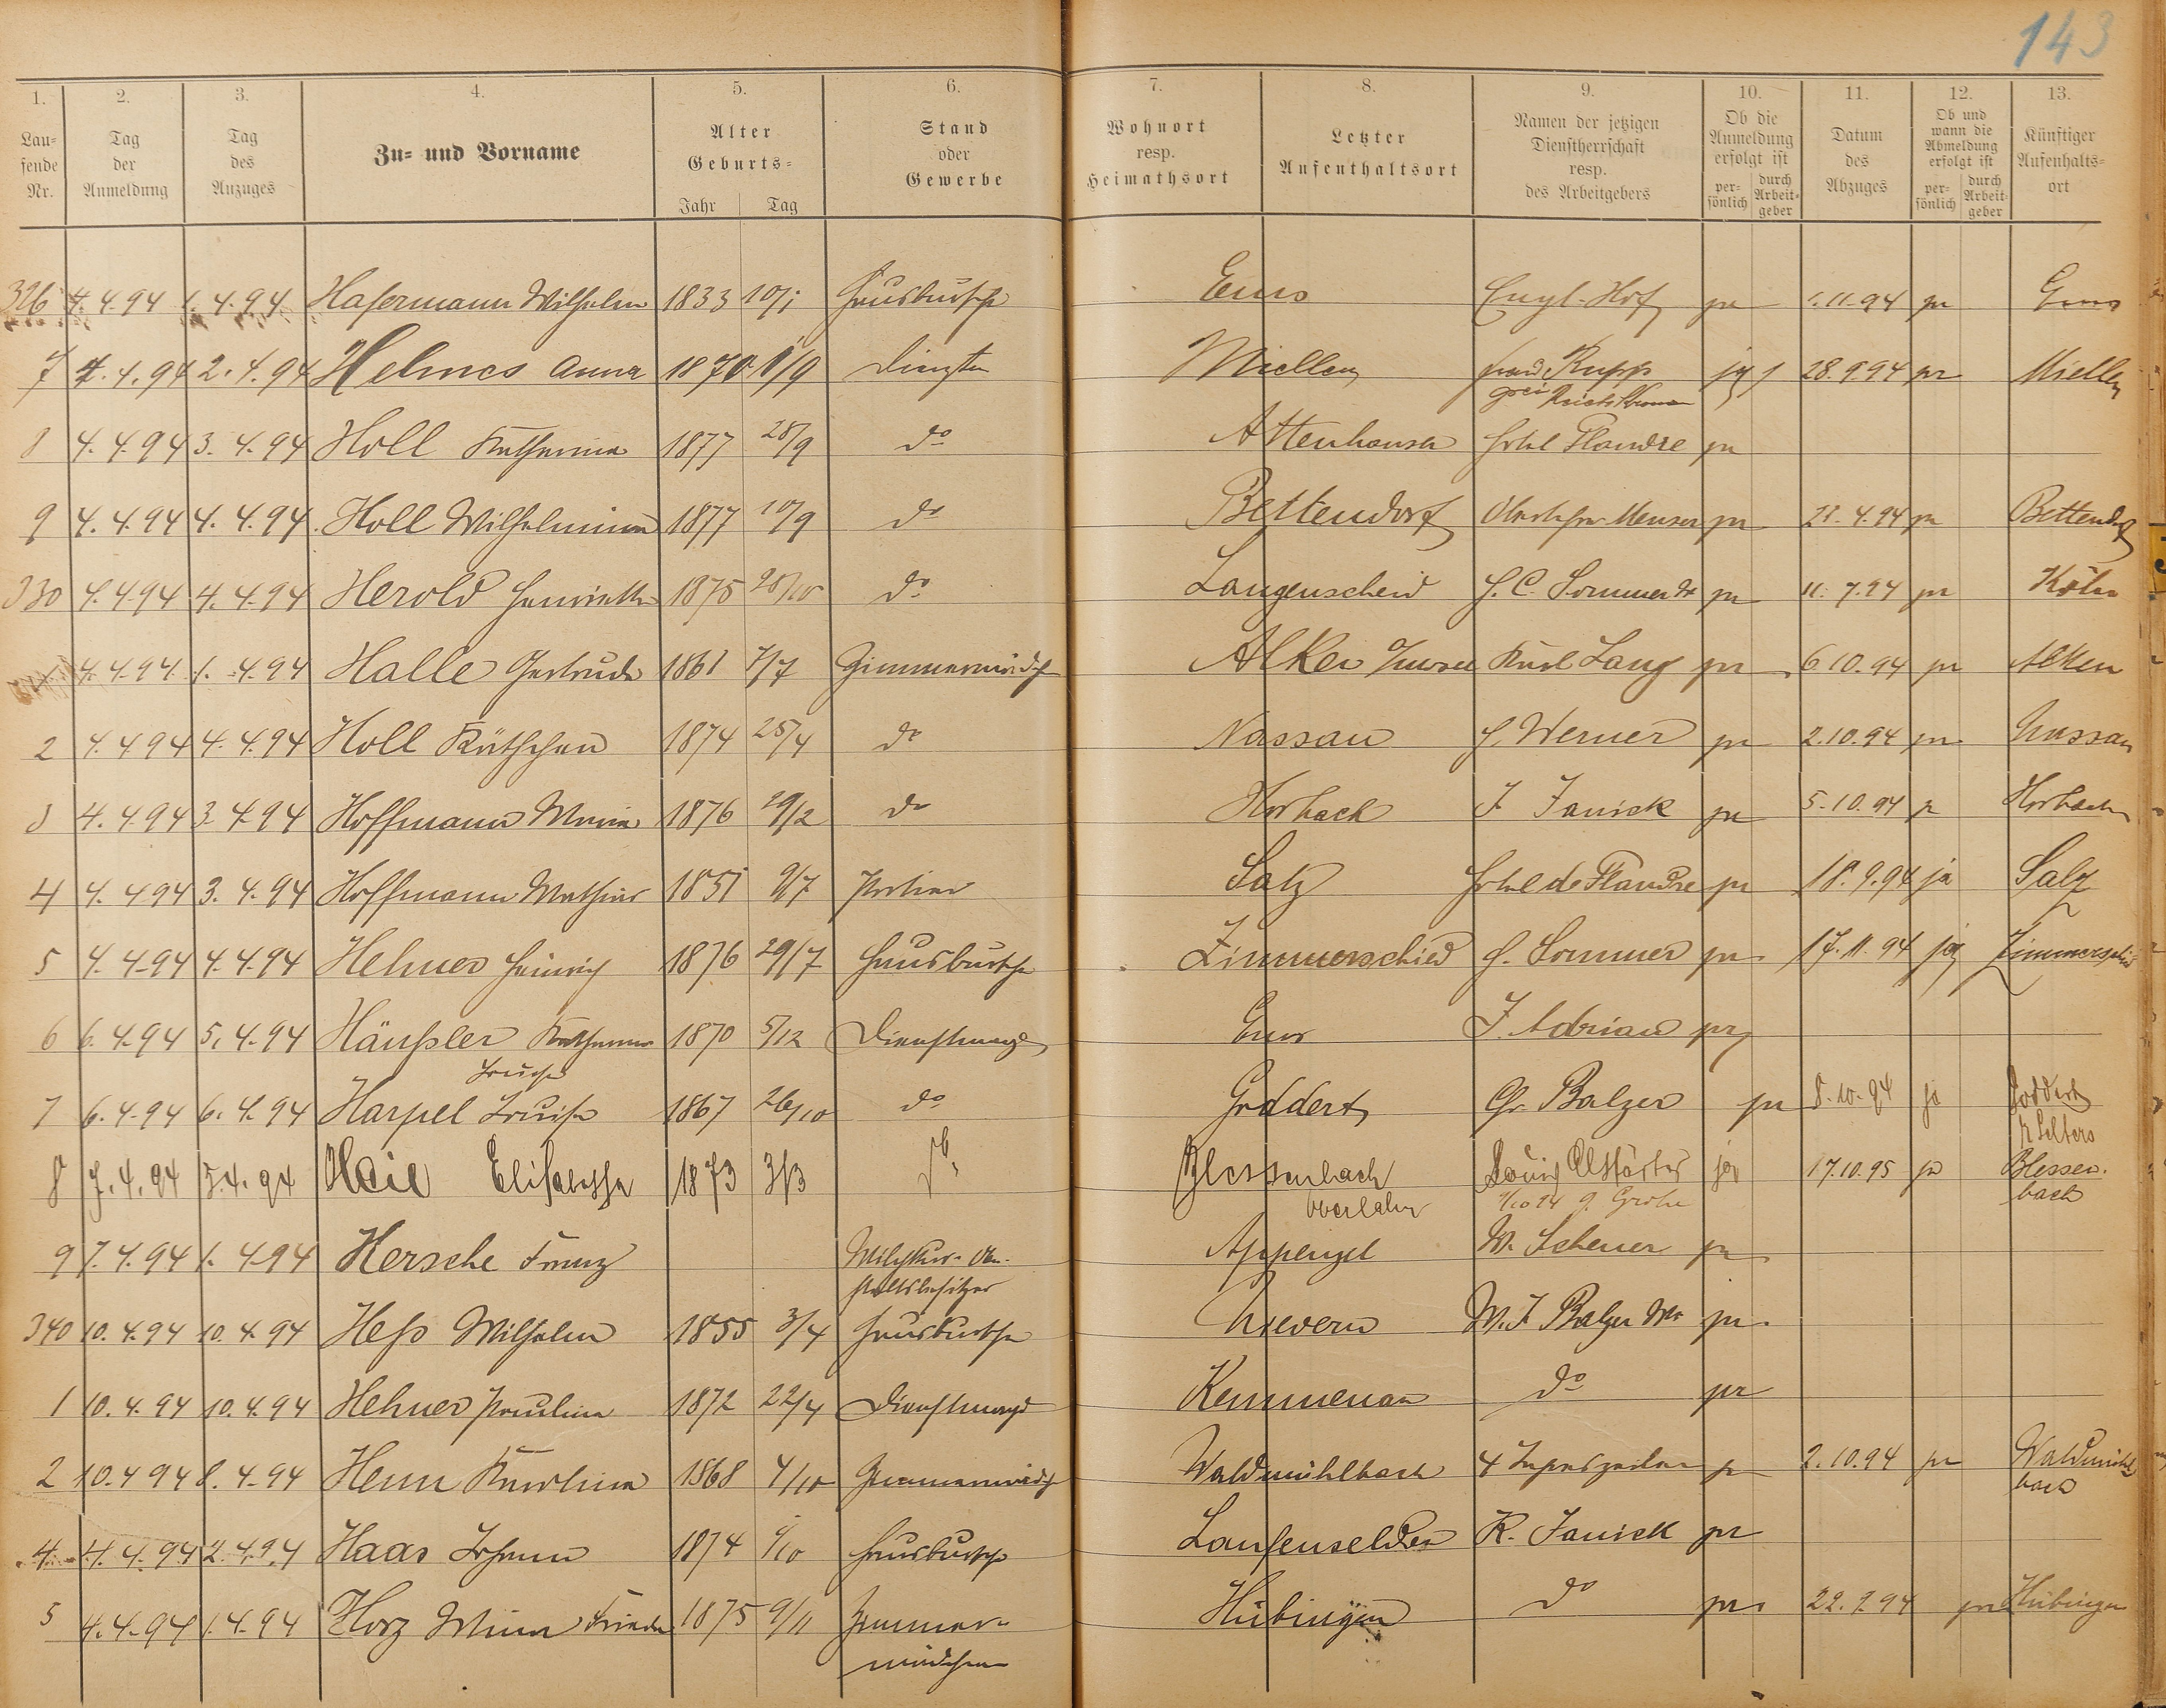 143
1. 2. 3. 4. 5. 6. 7. 8. 9. 10. 11. 12. 13.
Lau-
fende
Nr.
Tag
der
Anmeldung
Tag
des
Anzuges
Zu- und Vorname
Alter
Geburts-
Jahr Tag
Stand
oder
Gewerbe
Wohnort
resp.
Heimathsort
Letzter
Aufenthaltsort
Namen der jetzigen
Dienstherrschaft
resp.
des Arbeitgebers
Ob die
Anmeldung
erfolgt ist
per-
sönlich
durch
Arbeit-
geber
Datum
des
Abzuges
Ob und
wann die
Abmeldung
erfolgt ist
per-
sönlich
durch
Arbeit-
geber
Künftiger
Aufenhalts-
ort
326 4.4.94 1.4.94 Hafermann Wilhelm 1833 10/1 Hausbursche Ems Engl. Hof 1.11.94 Ems
7 4.4.94 2.4.94 Helmes Anna 1870 1/9 Miellen Frau Rupp 28.9.94 Miellen
8 4.4.94 3.4.94 Holl Katharina 1877 28/9 do Attenhausen Hotel Flandre
9 4.4.94 4.4.94 Holl Wilhelmine 1877 10/9 do Bettendorf Menser 4.94 Bettendorf
330 4.4.94 4.4.94 Herold Henriette 1875 20/10 do Langenscheid H. C. Sommer 11.7.94 Köln
4.4.94 1.4.94 Halle Gertrude 1861 7/7 Zimmermädch Alken Karl Lang 6.10.94 Alken
2 4.4.94 4.4.94 Holl Käthchen 1874 25/4 do Nassau H. Werner 2.10.94 Nassau
3 4.4.94 3.4.94 Hoffmann Maria 1876 29/2 do Horbach J. Janick 5.10.94 Horbach
4 4.4.94 3.4.94 Hoffmann Mathias 1851 9/7 Portier Salz Hotel de Flandre 18.9.94 ja Salz
5 4.4.94 4.4.94 Hehner Heinrich 1876 29/7 Hausbursche Zimmerschied H. Sommer 17.11.94 ja Zimmerschied
6 6.4.94 5.4.94 Häußler Katharina 1870 5/12 Dienstmagd Ems J. Adrian
Louise
7 6.4.94 6.4.94 Harpel Louise 1867 26/10 do Goddert Gr. Balzer 8.10.94 ja Goddert
Selters
8 7.4.94 5.4.94 Elisabetha 1873 3/3 do Blessenbach ja 17.10.95 Blessen-
bach
Oberlahn
9 7.4.94 1.4.94 Hersche Franz Milchkur-An-
staltsbesitzer Appenzel W. Scheuer
340 10.4.94 10.4.94 Heß Wilhelm 1855 3/4 Hausbursche Nievern W. J. Balzer Ww
1 10.4.94 10.4.94 Hehner Pauline 1872 22/4 Dienstmagd Kemmenau do
2 10.4.94 8.4.94 Henn Karolina 1868 4/10 Zimmermädch Waldmühlbach 4 Jahreszeiten 2.10.94 Waldmühl
bach
4 4.4.94 2.4.94 Haas Johann 1874 Hausbursche Laufenselden R. Janick
5 4.4.94 1.4.94 Horz Mina Frieda 1875 9/11 Zimmer-
mädchen Hübingen do 22.9.94 Hübingen